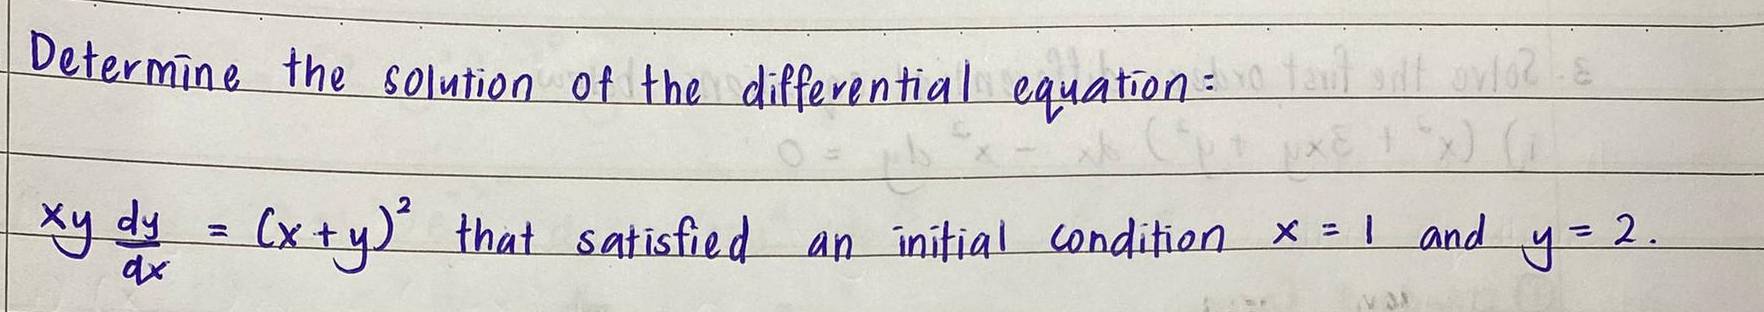 Determine the solution of the differential equation:
xy dy/dx = (x+y)² that satisfied an initial condition x = 1 and y = 2.